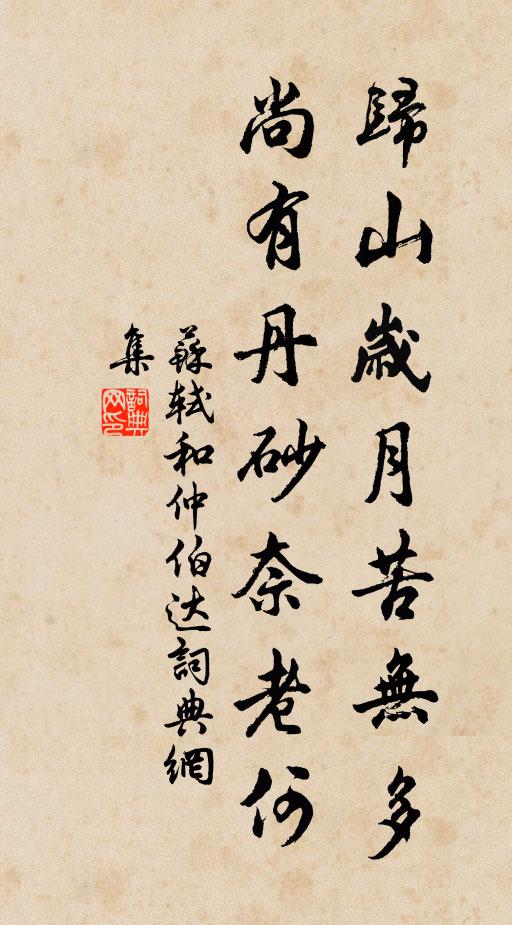 歸山歲月苦無多
尚有丹砂奈老何
蘇軾和仲伯达詞典網
集
詞典网印